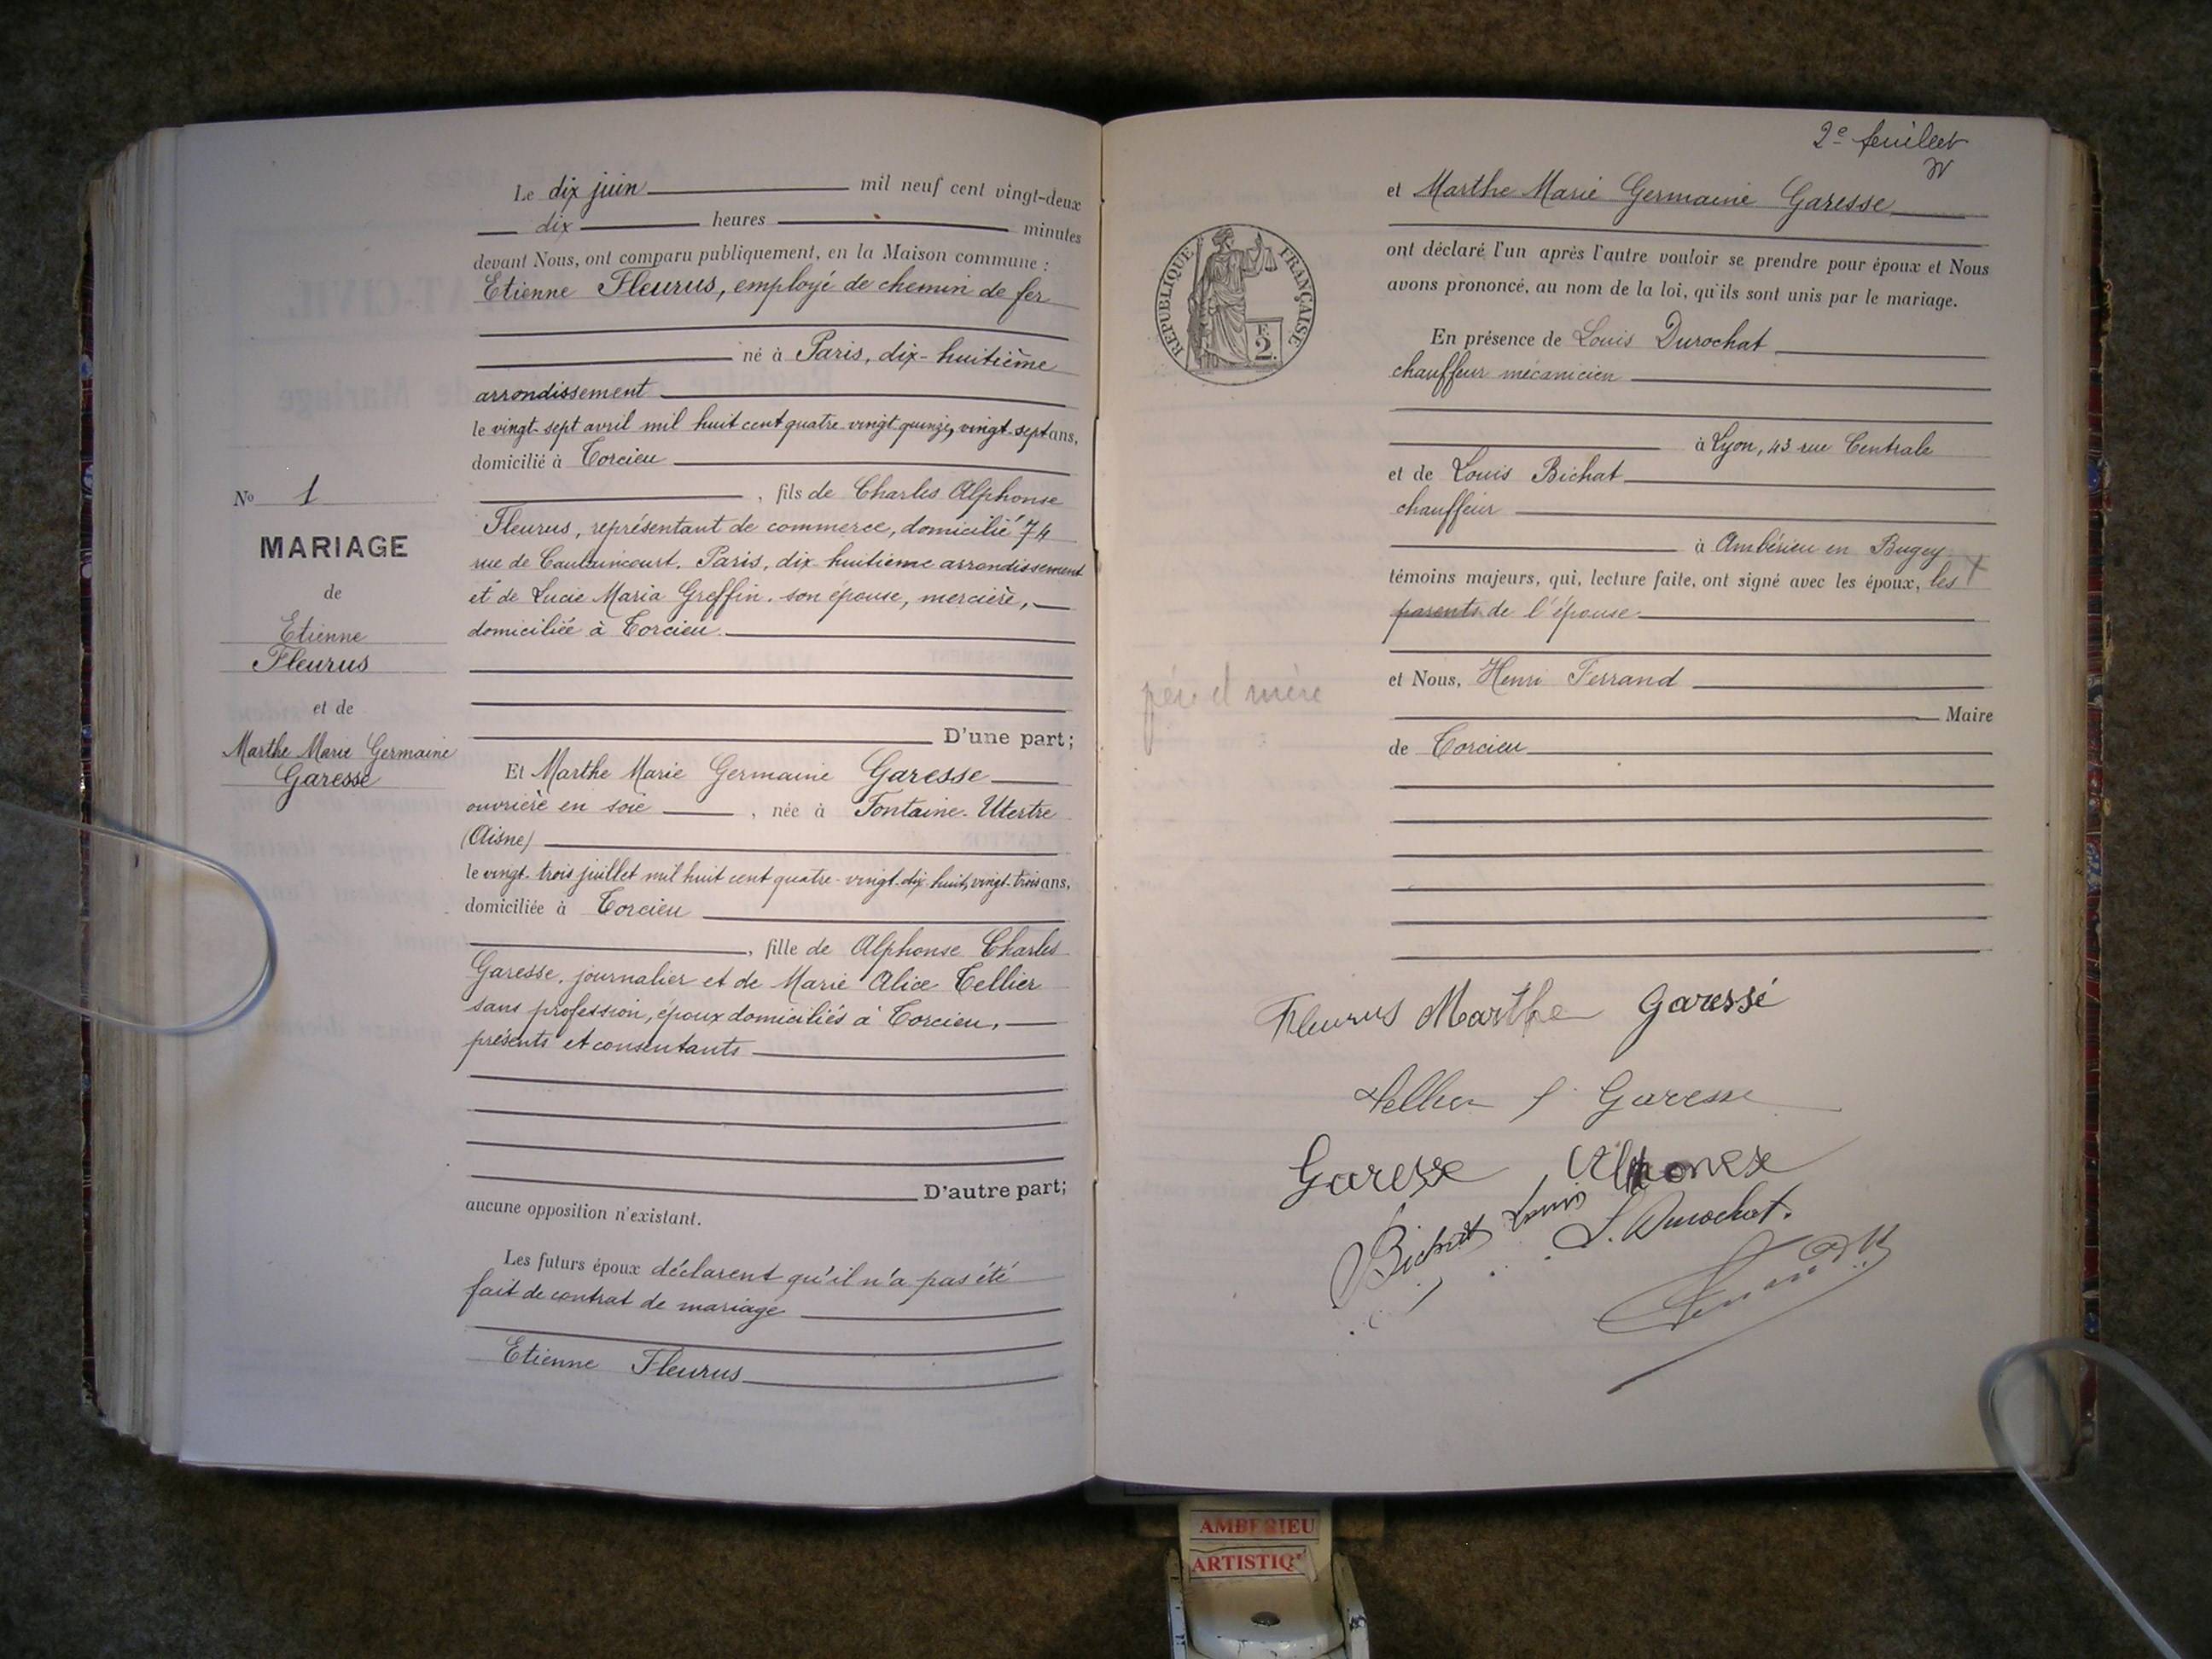 Le dix juin mil neuf cent vingt-deux
dix heures minutes
devant Nous, ont comparu publiquement, en la Maison commune :
Etienne Fleurus, employé de chemin de fer
né à Paris, dix-huitième
arrondissement
le vingt-sept avril mil huit cent quatre-vingt quinze, vingt-sept ans,
domicilié à Torcieu
, fils de Charles Alphonse
Fleurus, représentant de commerce, domicilié 74
rue de Caulaincourt. Paris, dix huitième arrondissement
et de Lucie Maria Greffin, son épouse, mercière,
domiciliée à Torcieu
D'une part;
No 1
MARIAGE
de
Etienne
Fleurus
et de
Marthe Marie Germaine
Garesse
Et Marthe Marie Germaine Garesse
ouvrière en soie , née à Fontaine-Utertre
(Aisne)
le vingt-trois juillet mil huit cent quatre-vingt-dix huit, vingt-trois ans,
domiciliée à Torcieu
, fille de Alphonse Charles
Garesse, journalier et de Marie Alice Tellier
sans profession, époux domiciliés à Torcieu,
présents et consentants
D'autre part;
aucune opposition n'existant.
Les futurs époux déclarent qu'il n'a pas été
fait de contrat de mariage
Etienne Fleurus
2e feuillet
et Marthe Marie Germaine Garesse
ont déclaré l'un après l'autre vouloir se prendre pour époux et Nous
avons prononcé, au nom de la loi, qu'ils sont unis par le mariage.
RÉPUBLIQUE FRANÇAISE
F.
2.
En présence de Louis Durochat
chauffeur mécanicien
à Lyon, 43 rue Centrale
et de Louis Bichat
chauffeur
à Ambérieu en Bugey
témoins majeurs, qui, lecture faite, ont signé avec les époux, les
parents de l'épouse
père et mère
et Nous, Henri Ferrand
Maire
de Torcieu
Fleurus Marthe Garessé
Tellier f Garesse
Garesse Alphonse
Bichat Louis L. Durochat.
Ferrand H
AMBERIEU
ARTISTIQ